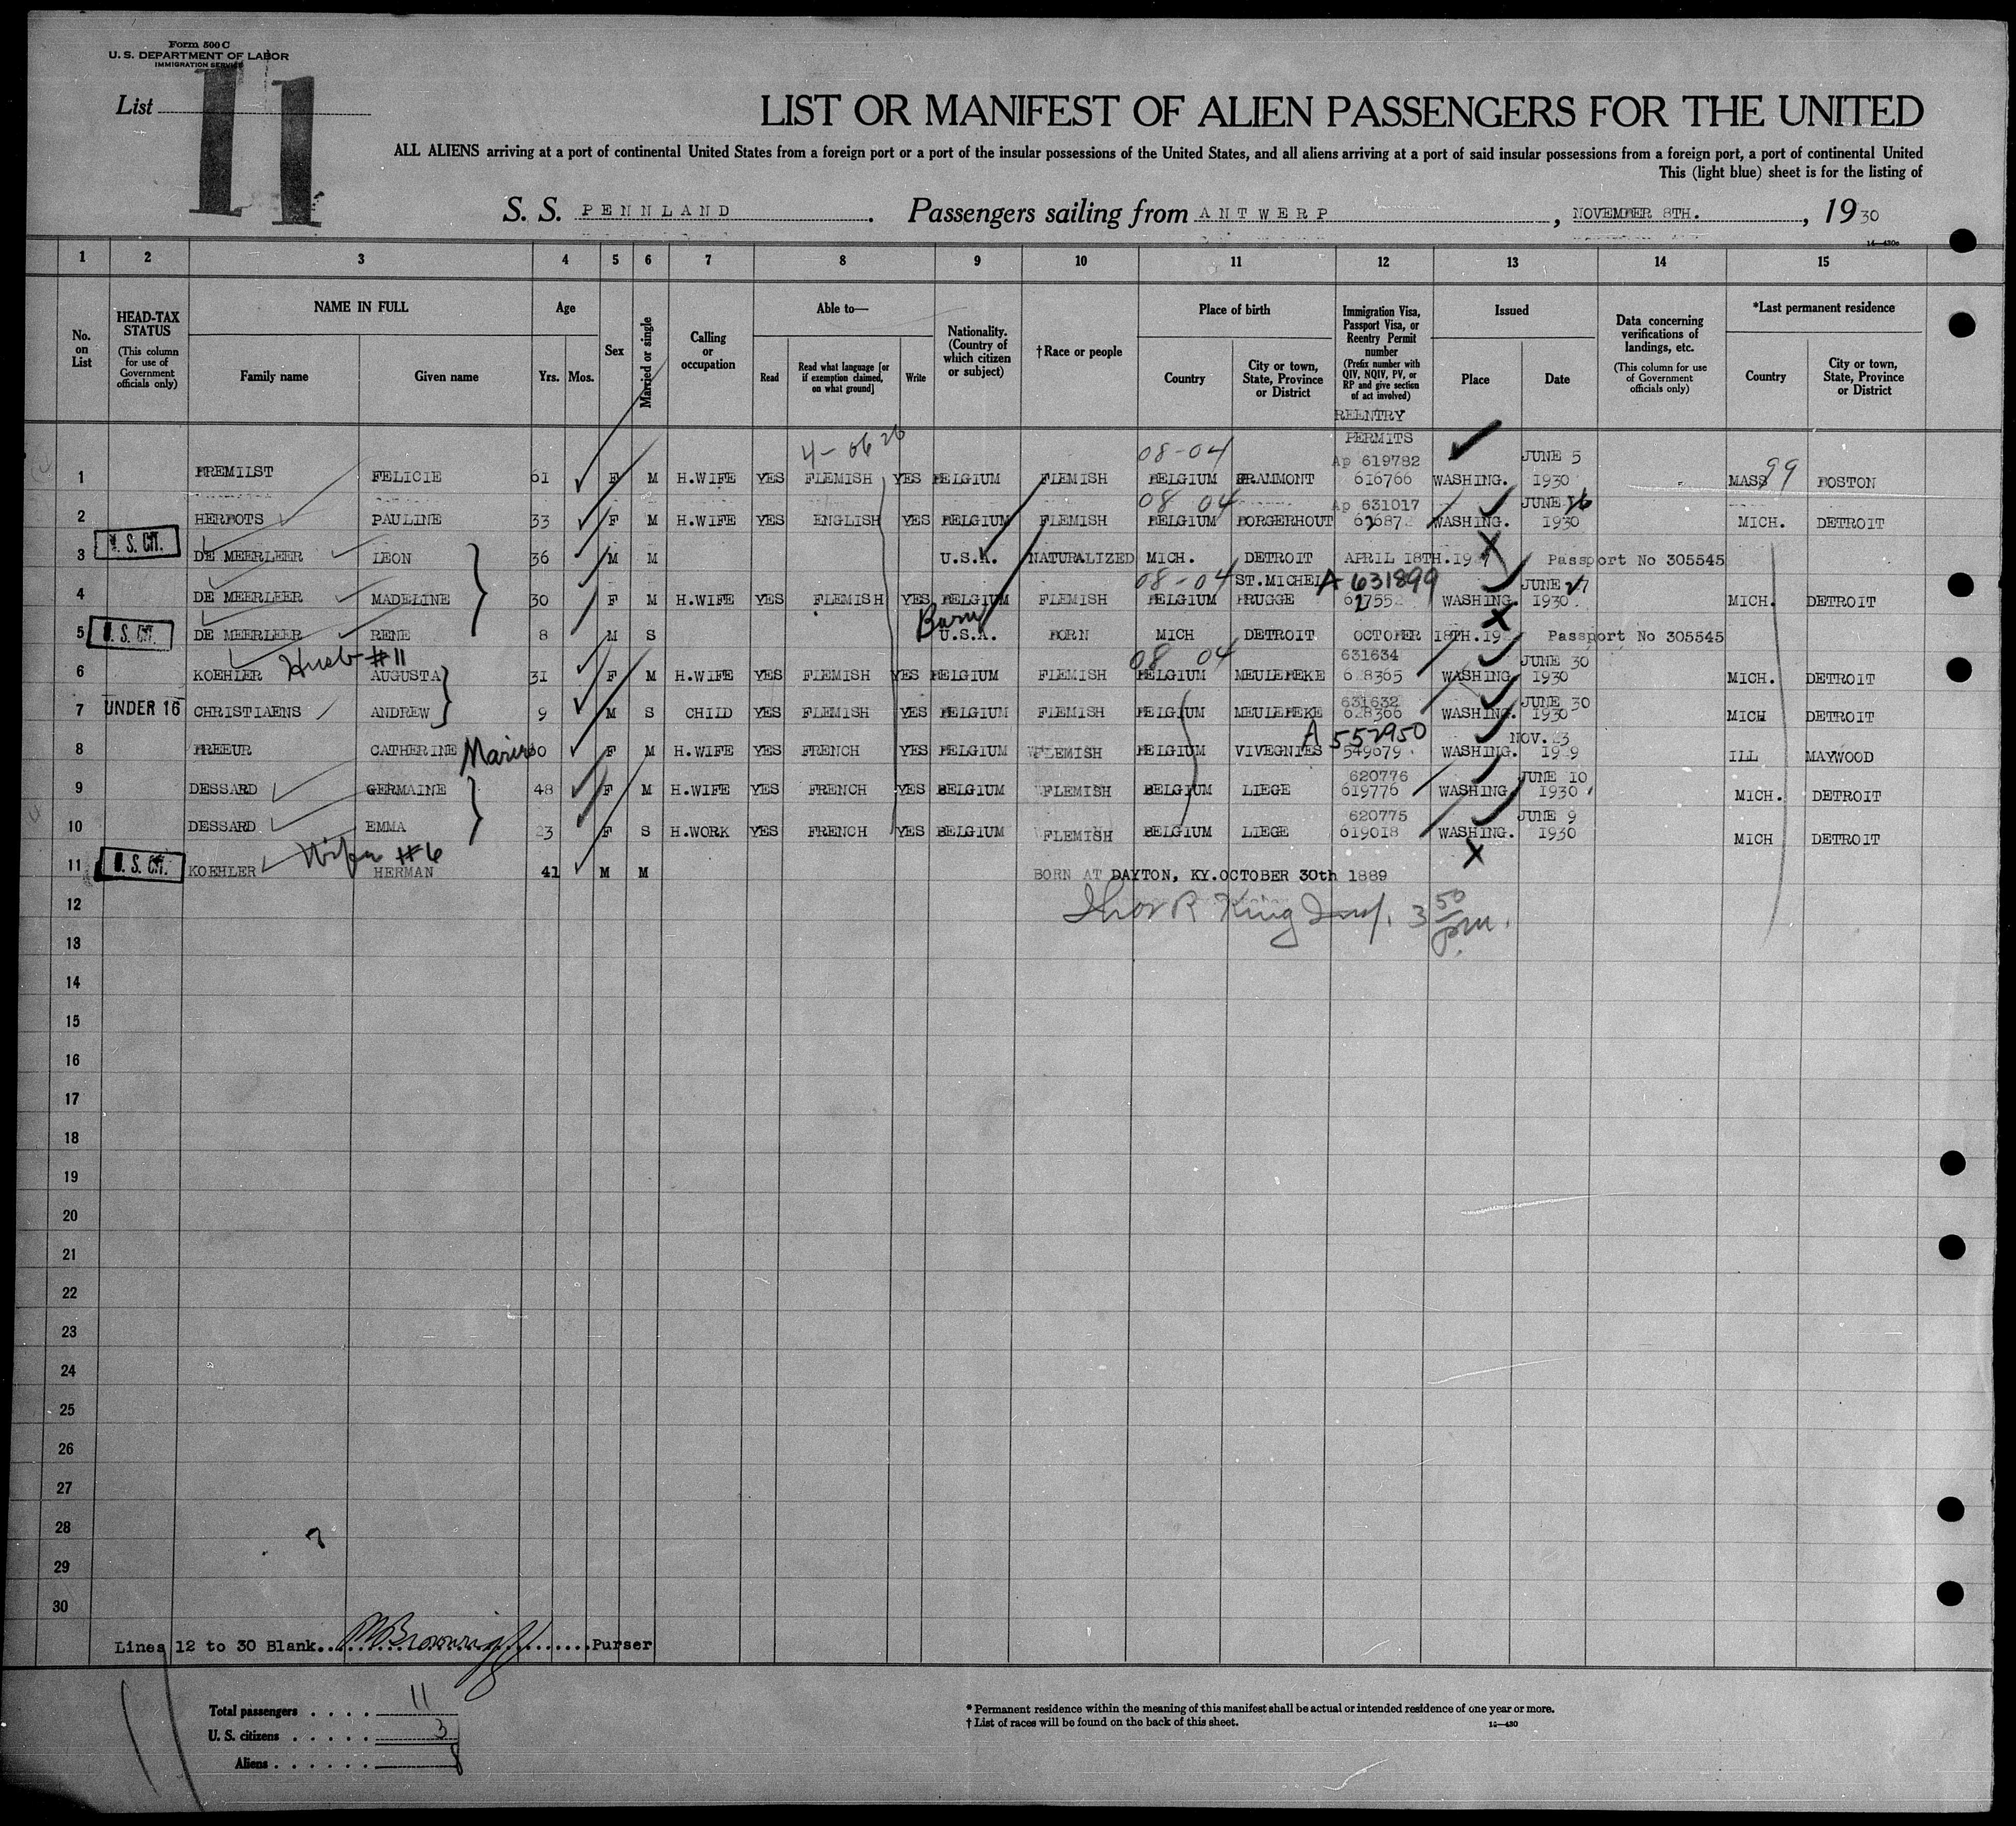 Form 500 C
U. S. DEPARTMENT OF LABOR
IMMIGRATION SERVICE
List 11
LIST OR MANIFEST OF ALIEN PASSENGERS FOR THE UNITED
ALL ALIENS arriving at a port of continental United States from a foreign port or a port of the insular possessions of the United States, and all aliens arriving at a port of said insular possessions from a foreign port, a port of continental United
This (light blue) sheet is for the listing of
S. S. PENNLAND. Passengers sailing from ANTWERP, NOVEMBER 8TH., 1930
14—430c
1 2 3 4 5 6 7 8 9 10 11 12 13 14 15
No. on List
HEAD-TAX STATUS (This column for use of Government officials only)
NAME IN FULL
Family name Given name
Age
Yrs. Mos.
Sex
Married or single
Calling or occupation
Able to—
Read
Read what language [or if exemption claimed, on what ground]
Write
Nationality. (Country of which citizen or subject)
†Race or people
Place of birth
Country
City or town, State, Province or District
Immigration Visa, Passport Visa, or Reentry Permit number (Prefix number with QIV, NQIV, PV, or RP and give section of act involved)
Issued
Place Date
Data concerning verifications of landings, etc. (This column for use of Government officials only)
*Last permanent residence
Country
City or town, State, Province or District
REENTRY PERMITS
4-06 26 08-04 Ap 619782 JUNE 5
1 FELICIE 61 F M H.WIFE YES FLEMISH YES BELGIUM FLEMISH BELGIUM GRAMMONT 616766 WASHING. 1930 MASS 99 BOSTON
08 04 Ap 631017 JUNE 26
2 HERBOTS PAULINE 33 F M H.WIFE YES ENGLISH YES BELGIUM FLEMISH BELGIUM BORGERHOUT WASHING. 1930 MICH. DETROIT
3 U. S. CIT. DE MEERLEER LEON 36 M M U.S.A. NATURALIZED MICH. DETROIT APRIL 18TH. Passport No 305545
08-04 ST.MICHEL A 631899 JUNE 27
4 DE MEERLEER MADELINE 30 F M H.WIFE YES FLEMISH YES BELGIUM FLEMISH BELGIUM BRUGGE WASHING. 1930. MICH. DETROIT
Born
5 U. S. CIT. DE MEERLEER RENE 8 M S U.S.A. BORN MICH DETROIT OCTOBER 18TH. Passport No 305545
Husb #11 08 04 631634 JUNE 30
6 KOEHLER AUGUSTA 31 F M H.WIFE YES FLEMISH YES BELGIUM FLEMISH BELGIUM MEULEBEKE 628365 WASHING. 1930 MICH. DETROIT
631632 JUNE 30
7 UNDER 16 CHRISTIAENS ANDREW 9 M S CHILD YES FLEMISH YES BELGIUM FLEMISH BELGIUM MEULEBEKE 628366 WASHING. 1930 MICH DETROIT
A 552950 NOV. 23
8 CATHERINE Marie F M H.WIFE YES FRENCH YES BELGIUM FLEMISH BELGIUM VIVEGNIES 549679 WASHING. 1929 ILL MAYWOOD
620776 JUNE 10
9 DESSARD GERMAINE 48 F M H.WIFE YES FRENCH YES BELGIUM FLEMISH BELGIUM LIEGE 619776 WASHING. 1930 MICH. DETROIT
620775 JUNE 9
10 DESSARD EMMA 23 F S H.WORK YES FRENCH YES BELGIUM FLEMISH BELGIUM LIEGE 619018 WASHING. 1930 MICH DETROIT
Wife #6
11 U. S. CIT. KOEHLER HERMAN 41 M M BORN AT DAYTON, KY. OCTOBER 30th 1889
12 King Insp. 3 50 pm.
13
14
15
16
17
18
19
20
21
22
23
24
25
26
27
28
29
30
Lines 12 to 30 Blank..........Purser
Total passengers . . . . 11
U. S. citizens . . . . . 3
Aliens . . . . . . 8
* Permanent residence within the meaning of this manifest shall be actual or intended residence of one year or more.
† List of races will be found on the back of this sheet.
14—430